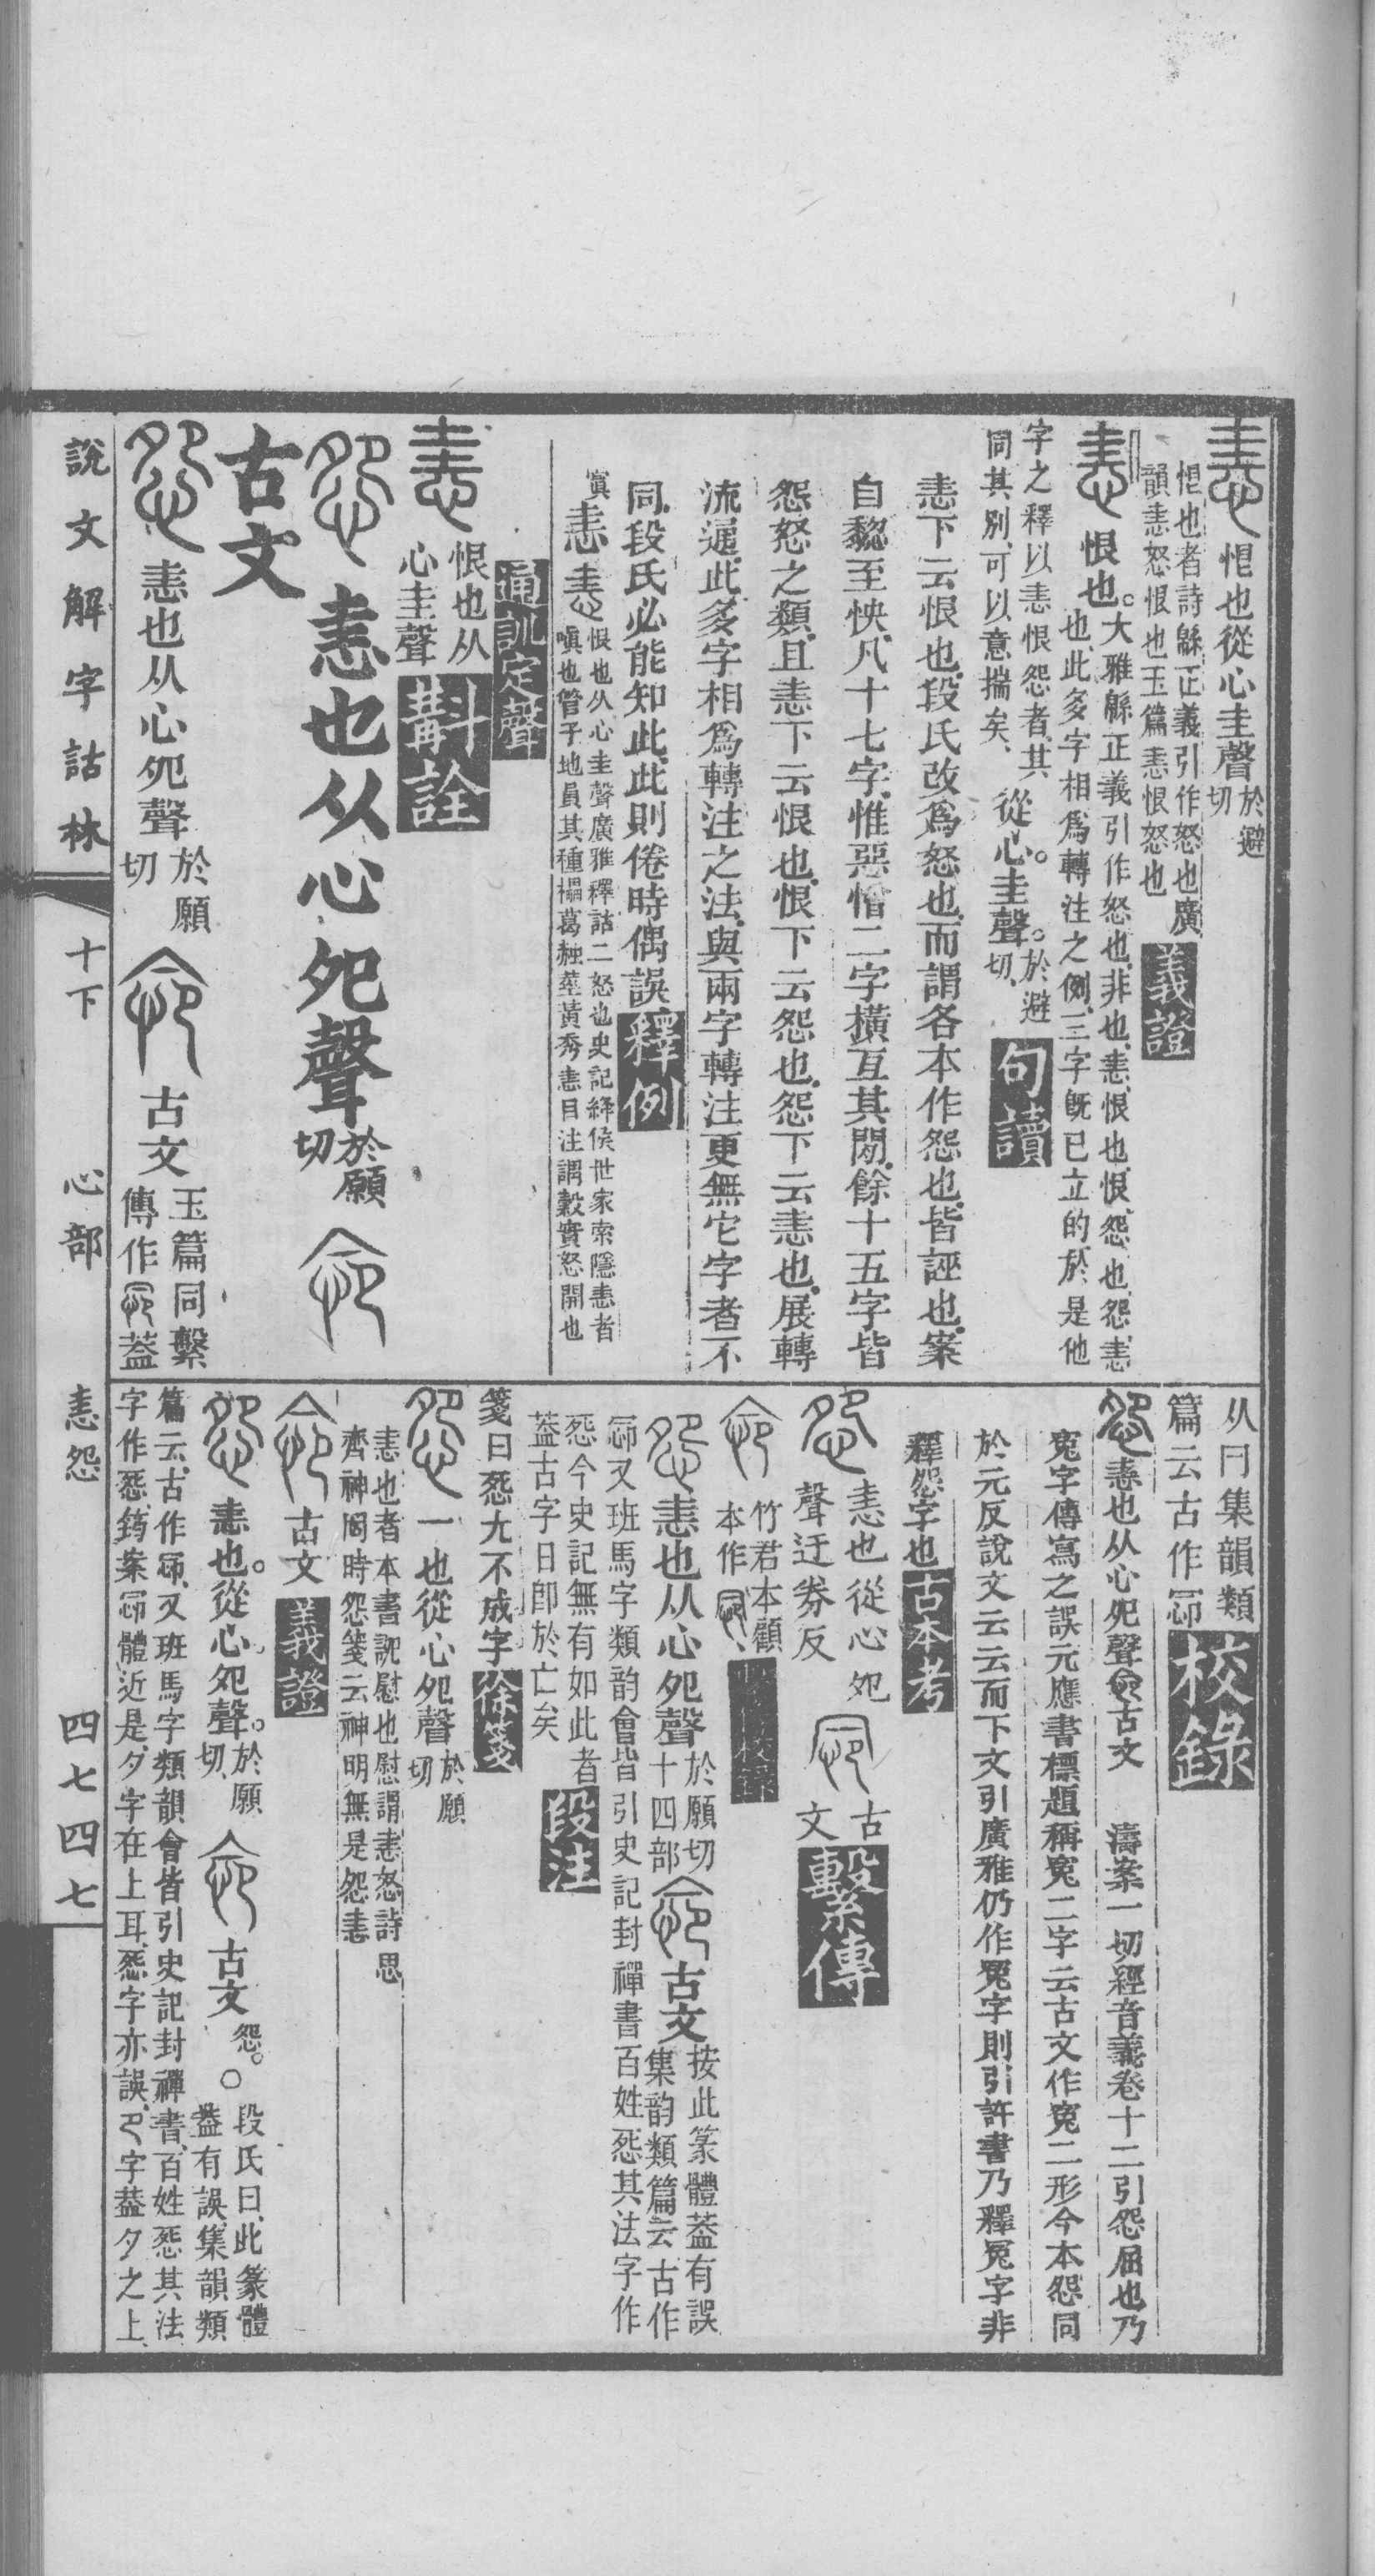 恚怚也從心圭聲於避切
怚也者詩緜正義引作怒也廣
韻恚怒恨也玉篇恚恨怒也義證
恚恨也。大雅緜正義引作怒也非也恚恨也恨怨也怨恚
也此多字相爲轉注之例三字旣已立的於是他
字之釋以恚恨怨者其
同其別可以意揣矣、從心。圭聲。於避切、句讀
恚下云恨也段氏改爲怒也而謂各本作怨也皆誣也案
自𢤂至怏凡十七字惟惡憎二字橫亙其閒餘十五字皆
怨怒之類且恚下云恨也恨下云怨也怨下云恚也展轉
流遞此多字相爲轉注之法與兩字轉注更無它字者不
同段氏必能知此此則倦時偶誤釋例
恚恚恨也从心圭聲廣雅釋詁二怒也史記絳侯世家索隱恚者
嗔也管子地員其種櫑葛𧹞莖黃秀恚目注謂穀實怒開也
通訓定聲
恚恨也从
心圭聲斠詮
怨恚也从心夗聲於願切
古文
怨恚也从心夗聲於願切 古文玉篇同繫
傳作蓋
从冃集韻類
篇云古作𢘍校錄
怨恚也从心夗聲古文 濤案一切經音義卷十二引怨屈也乃
冤字傳寫之誤元應書標題稱冤二字云古文作冤二形今本怨同
於元反說文云云而下文引廣雅仍作冤字則引許書乃釋冤字非
釋怨字也古本考
怨恚也從心夗
聲迂券反 古
文繫傳
竹君本顧
本作
校錄
怨恚也从心夗聲於願切
十四部古文按此篆體蓋有誤
集韵類篇云古作
𢘍又班馬字類韵會皆引史記封禪書百姓怨其法字作
𢙇今史記無有如此者
蓋古字日卽於亡矣段注
箋曰𢙇尢不成字徐箋
怨一也從心夗聲於願切
恚也者本書訧慰也慰謂恚怒詩思
齊神罔時怨箋云神明無是怨恚
古文義證
怨恚也。從心。夗聲。於願切、古文怨。○段氏曰、此篆體
蓋有誤集韻類
篇云古作𢘍又班馬字類韻會皆引史記封禪書百姓𢙇其法
字作𢙇筠案𢘍體近是夕字在上耳𢙇字亦誤㔾字蓋夕之上
說文解字詁林 十下 心部 恚怨 四七四七